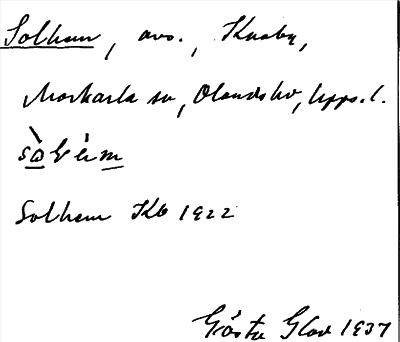 Solhem, avs., Knaby,
Morkarla sn, Olands hd, Upps. l.
Solhem Kb 1922
Gösta Glav 1937